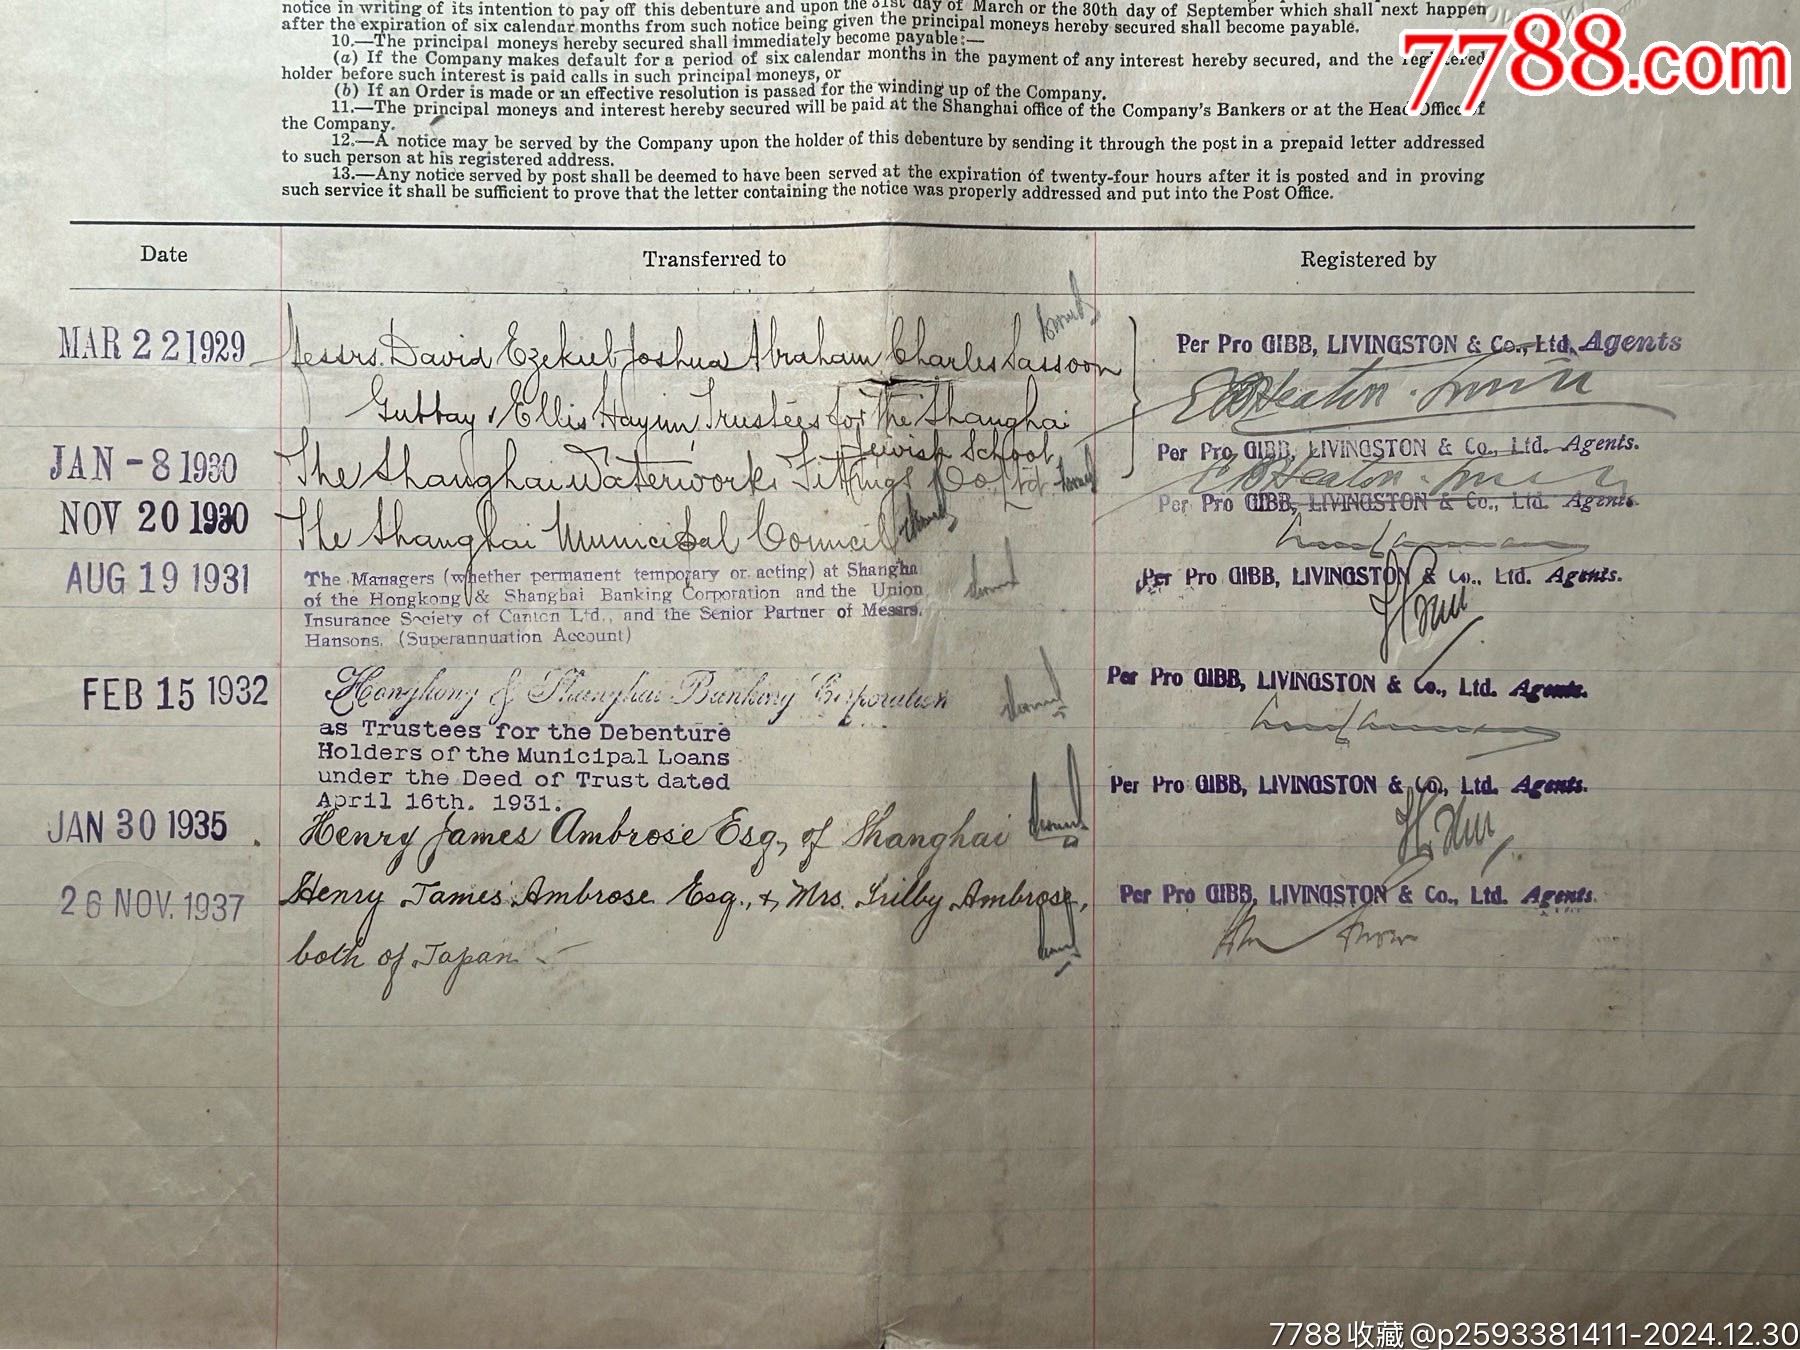 notice in writing of its intention to pay off this debenture and upon the 31st day of March or the 30th day of September which shall next happen
after the expiration of six calendar months from such notice being given the principal moneys hereby secured shall become payable.
10.—The principal moneys hereby secured shall immediately become payable:—
(a) If the Company makes default for a period of six calendar months in the payment of any interest hereby secured, and the registered
holder before such interest is paid calls in such principal moneys, or
(b) If an Order is made or an effective resolution is passed for the winding up of the Company.
11.—The principal moneys and interest hereby secured will be paid at the Shanghai office of the Company's Bankers or at the Head Office of
the Company.
12.—A notice may be served by the Company upon the holder of this debenture by sending it through the post in a prepaid letter addressed
to such person at his registered address.
13.—Any notice served by post shall be deemed to have been served at the expiration of twenty-four hours after it is posted and in proving
such service it shall be sufficient to prove that the letter containing the notice was properly addressed and put into the Post Office.
7788.com
Date Transferred to Registered by
MAR 22 1929 Messrs. David Ezekiel Joshua Abraham, Charles Sassoon Per Pro GIBB, LIVINGSTON & Co., Ltd. Agents
Gubbay & Ellis Hayim, Trustees for The Shanghai
Jewish School
Per Pro GIBB, LIVINGSTON & Co., Ltd. Agents.
JAN -8 1930 The Shanghai Waterworks Fittings Co. Ltd.
Per Pro GIBB, LIVINGSTON & Co., Ltd. Agents.
NOV 20 1930 The Shanghai Municipal Council
AUG 19 1931 The Managers (whether permanent temporary or acting) at Shangha Per Pro GIBB, LIVINGSTON & Co., Ltd. Agents.
of the Hongkong & Shanghai Banking Corporation and the Union
Insurance Society of Canton Ltd., and the Senior Partner of Messrs.
Hansons. (Superannuation Account)
FEB 15 1932 Hongkong & Shanghai Banking Corporation Per Pro GIBB, LIVINGSTON & Co., Ltd. Agents.
as Trustees for the Debenture
Holders of the Municipal Loans
under the Deed of Trust dated Per Pro GIBB, LIVINGSTON & Co., Ltd. Agents.
April 16th. 1931.
JAN 30 1935 Henry James Ambrose Esq., of Shanghai
26 NOV. 1937 Henry James Ambrose Esq., & Mrs. Trilby Ambrose, Per Pro GIBB, LIVINGSTON & Co., Ltd. Agents.
both of Japan
7788收藏@p2593381411-2024.12.30